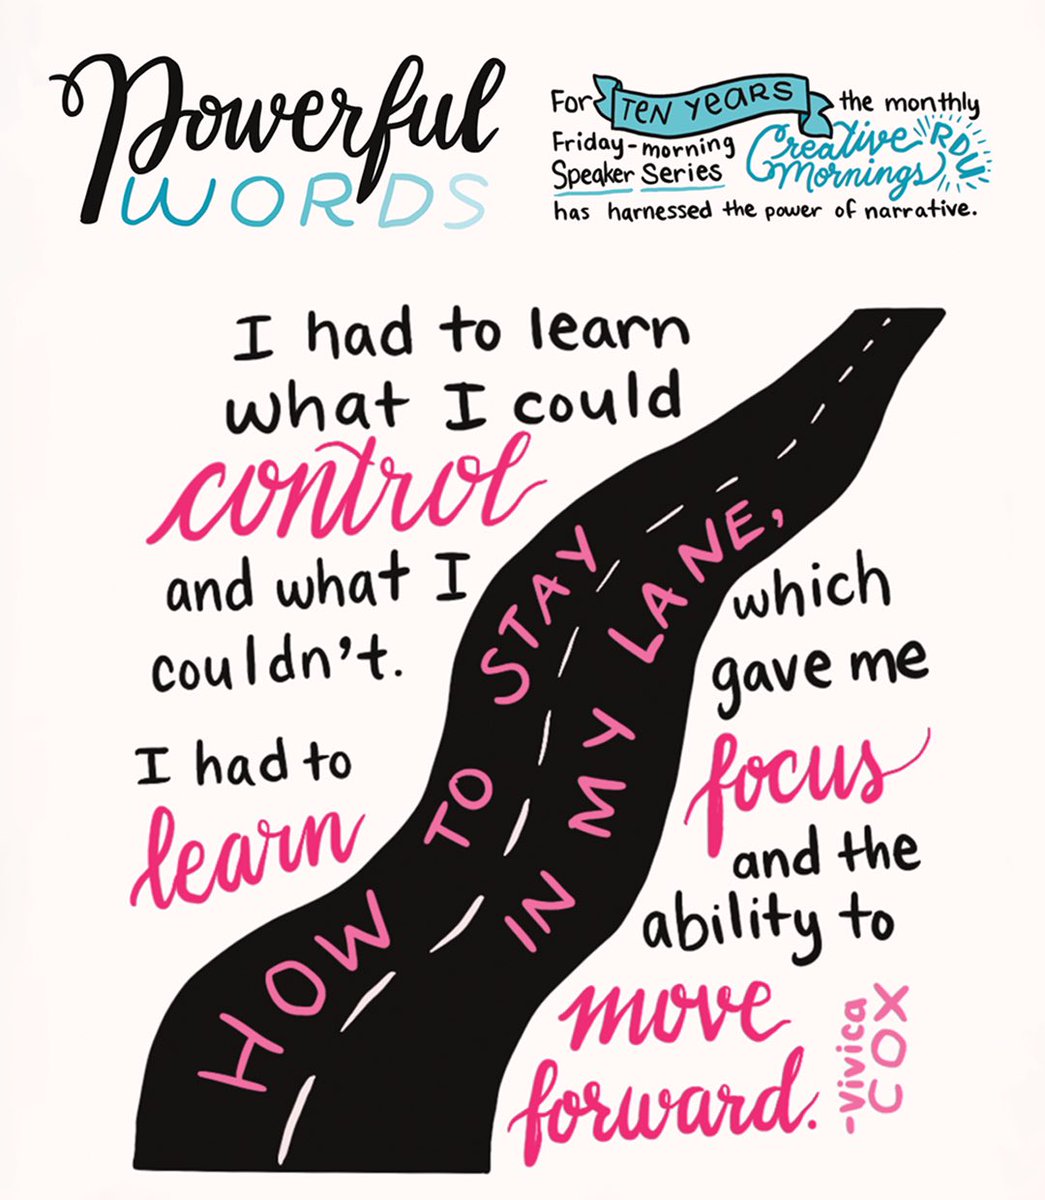 Powerful
WORDS
For TEN YEARS the monthly
Friday-morning
Speaker Series
Creative
Mornings RDU
has harnessed the power of narrative.
I had to learn
what I could
control
and what I
couldn't.
I had to
learn
HOW TO STAY
IN MY LANE,
which
gave me
focus
and the
ability to
move
forward.
-Vivica
COX